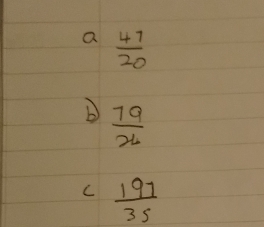 a 47
20
b) 79
24
c 197
35